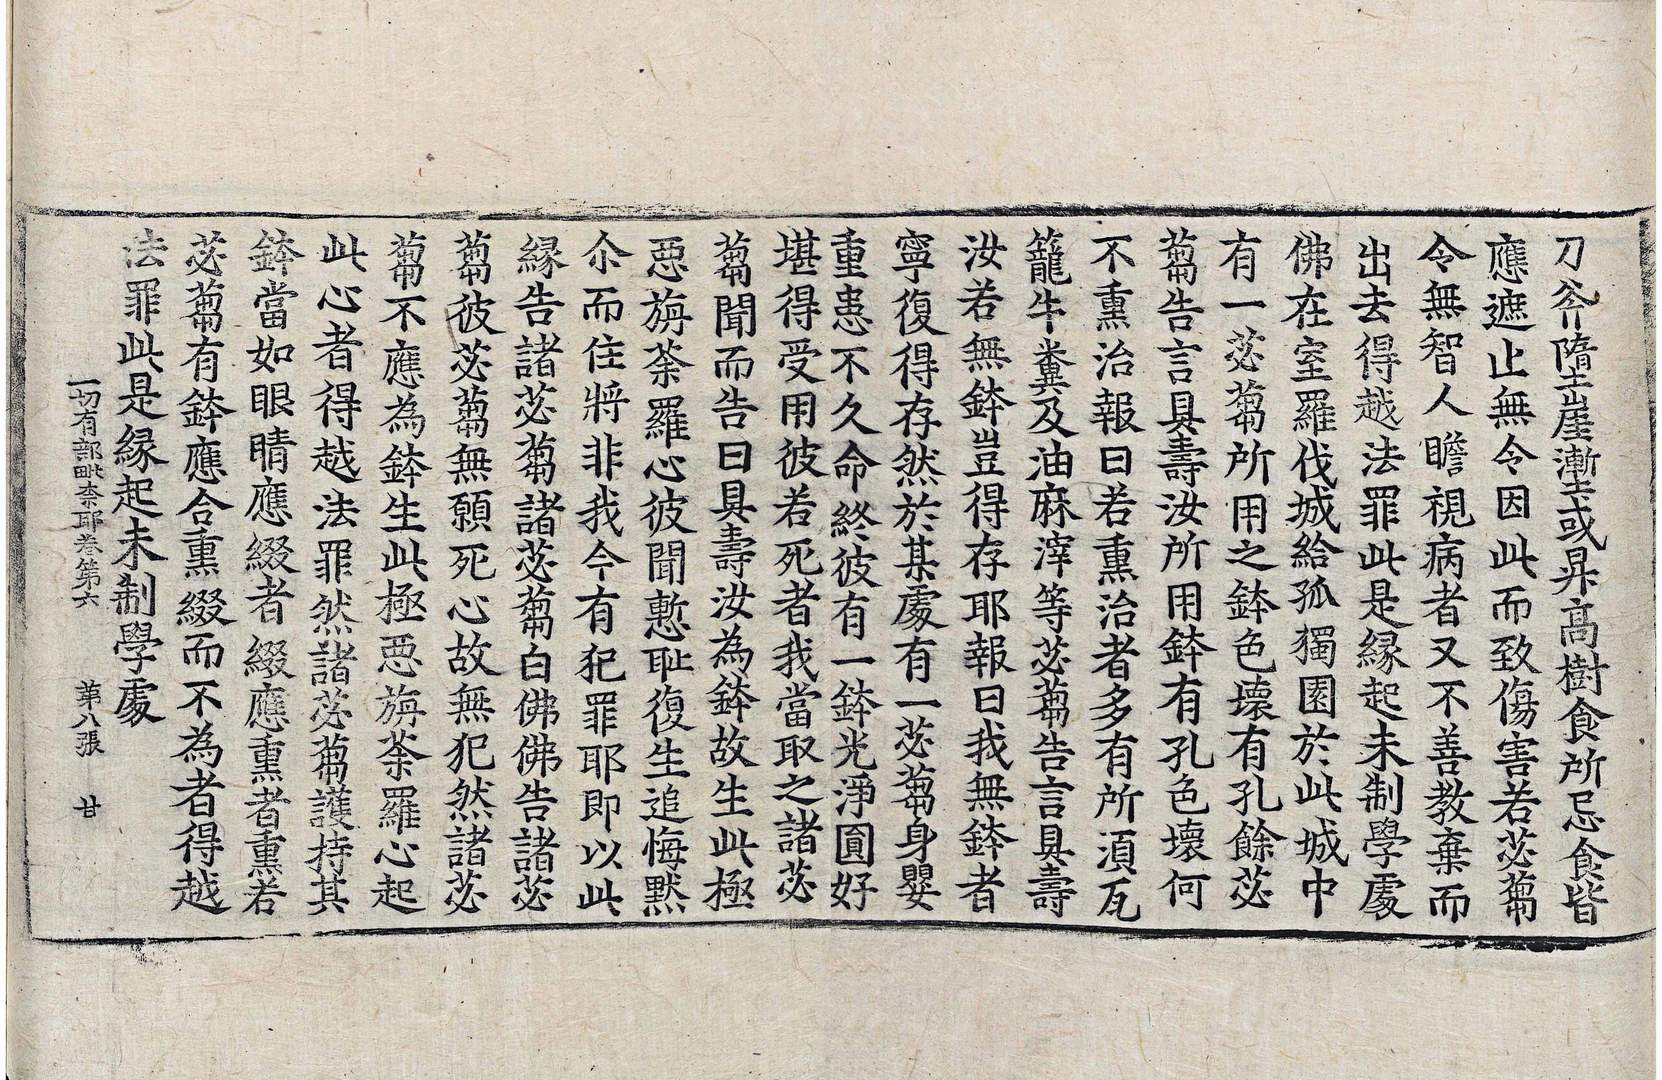 刀斧墮崖漸土或昇高樹食所忌食皆
應遮止無令因此而致傷害若苾蒭
令無智人瞻視病者又不善教棄而
出去得越法罪此是緣起未制學處
佛在室羅伐城給孤獨園於此城中
有一苾蒭所用之鉢色壞有孔餘苾
蒭告言具壽汝所用鉢有孔色壞何
不熏治報曰若熏治者多有所須瓦
籠牛糞及油麻滓等苾蒭告言具壽
汝若無鉢豈得存耶報曰我無鉢者
寧復得存然於某處有一苾蒭身嬰
重患不久命終彼有一鉢光淨圓好
堪得受用彼若死者我當取之諸苾
蒭聞而告曰具壽汝為鉢故生此極
惡旃荼羅心彼聞慙恥復生追悔默
尒而住將非我今有犯罪耶即以此
緣告諸苾蒭諸苾蒭白佛佛告諸苾
蒭彼苾蒭無願死心故無犯然諸苾
蒭不應為鉢生此極惡旃荼羅心起
此心者得越法罪然諸苾蒭護持其
鉢當如眼睛應綴者綴應熏者熏若
苾蒭有鉢應合熏綴而不為者得越
法罪此是緣起未制學處
一切有部毗奈耶卷第六 第八張 甘